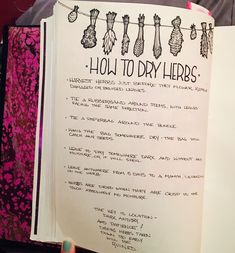 · HOW TO DRY HERBS ·
· HARVEST HERBS JUST BEFORE THEY FLOWER, REMOVE
DAMAGED OR BRUISED LEAVES.
· TIE A RUBBERBAND AROUND STEMS, WITH LEAVES
FACING THE SAME DIRECTION.
· TIE A PAPERBAG AROUND THE BUNDLE.
· HANG THE BAG SOMEWHERE DRY - THE BAG WILL
CATCH ANY SEEDS.
· LEAVE TO DRY SOMEWHERE DARK AND WITHOUT ANY
MOISTURE, OR IT WILL SPOIL.
· LEAVE ANYWHERE FROM 5 DAYS TO A MONTH,
ON THE HERBS.
· HERBS ARE DONE WHEN THEY ARE CRISP TO THE
TOUCH. ABSOLUTELY NO MOISTURE.
THE KEY IS LOCATION -
DARK AND DRY
AND PATIENCE!
HERBS TAKEN
DOWN TO EARLY
WILL BE
RUINED.